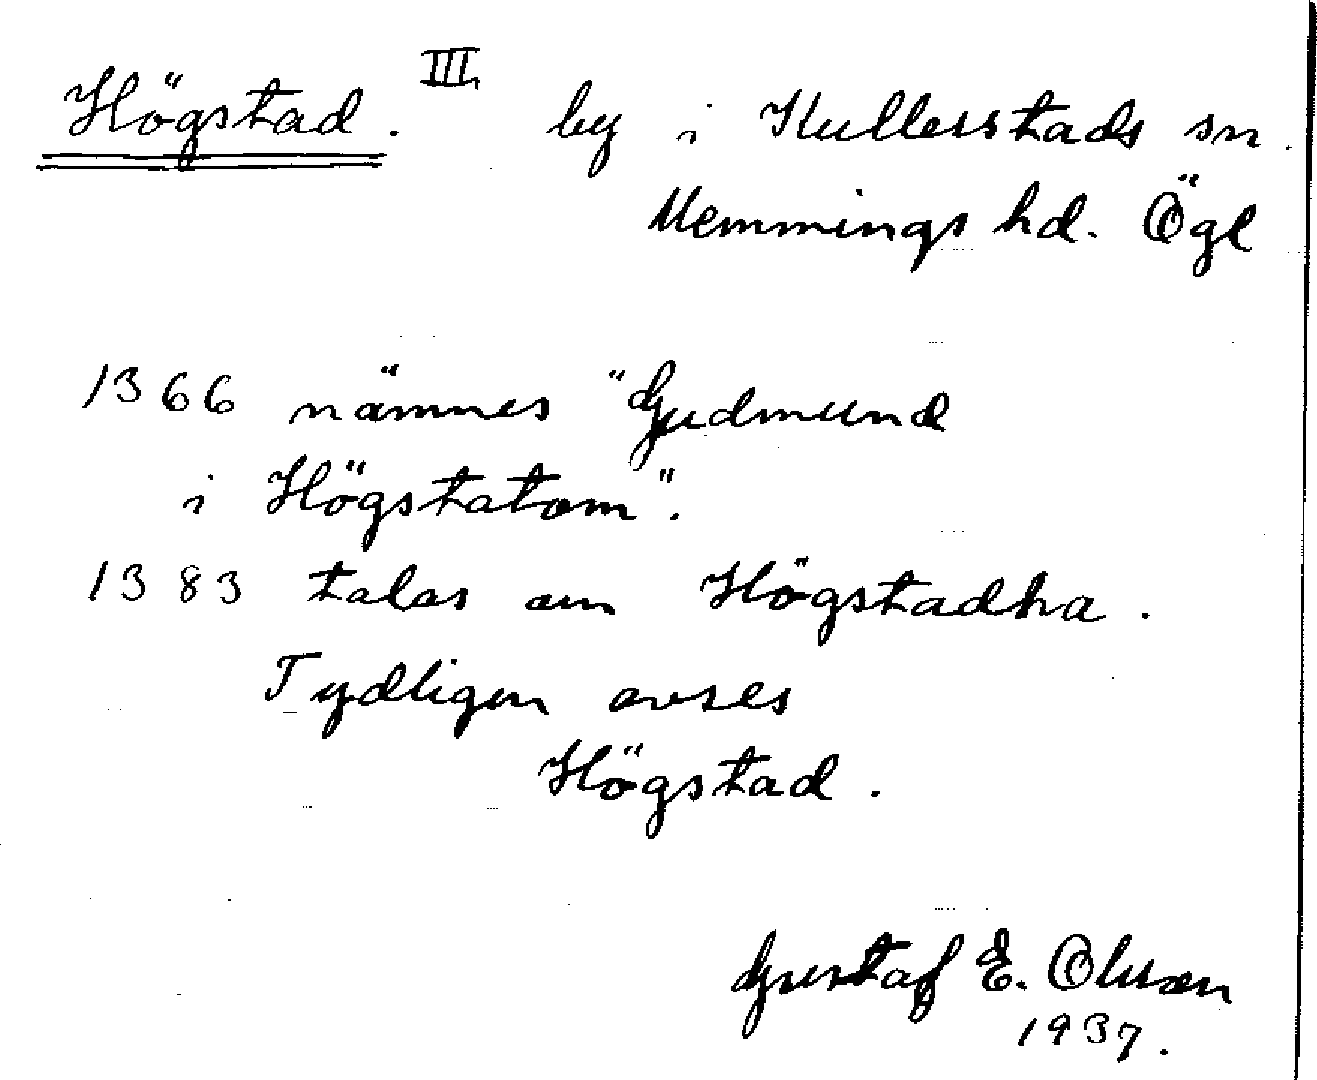 Högstad. III, by i Kullerstads sn.
Memmings hd. Ögl
1366 nämnes "Gudmund
i Högstatom".
1383 talas om Högstadha.
Tydligen avses
Högstad.
Gustaf E. Olsson
1937.